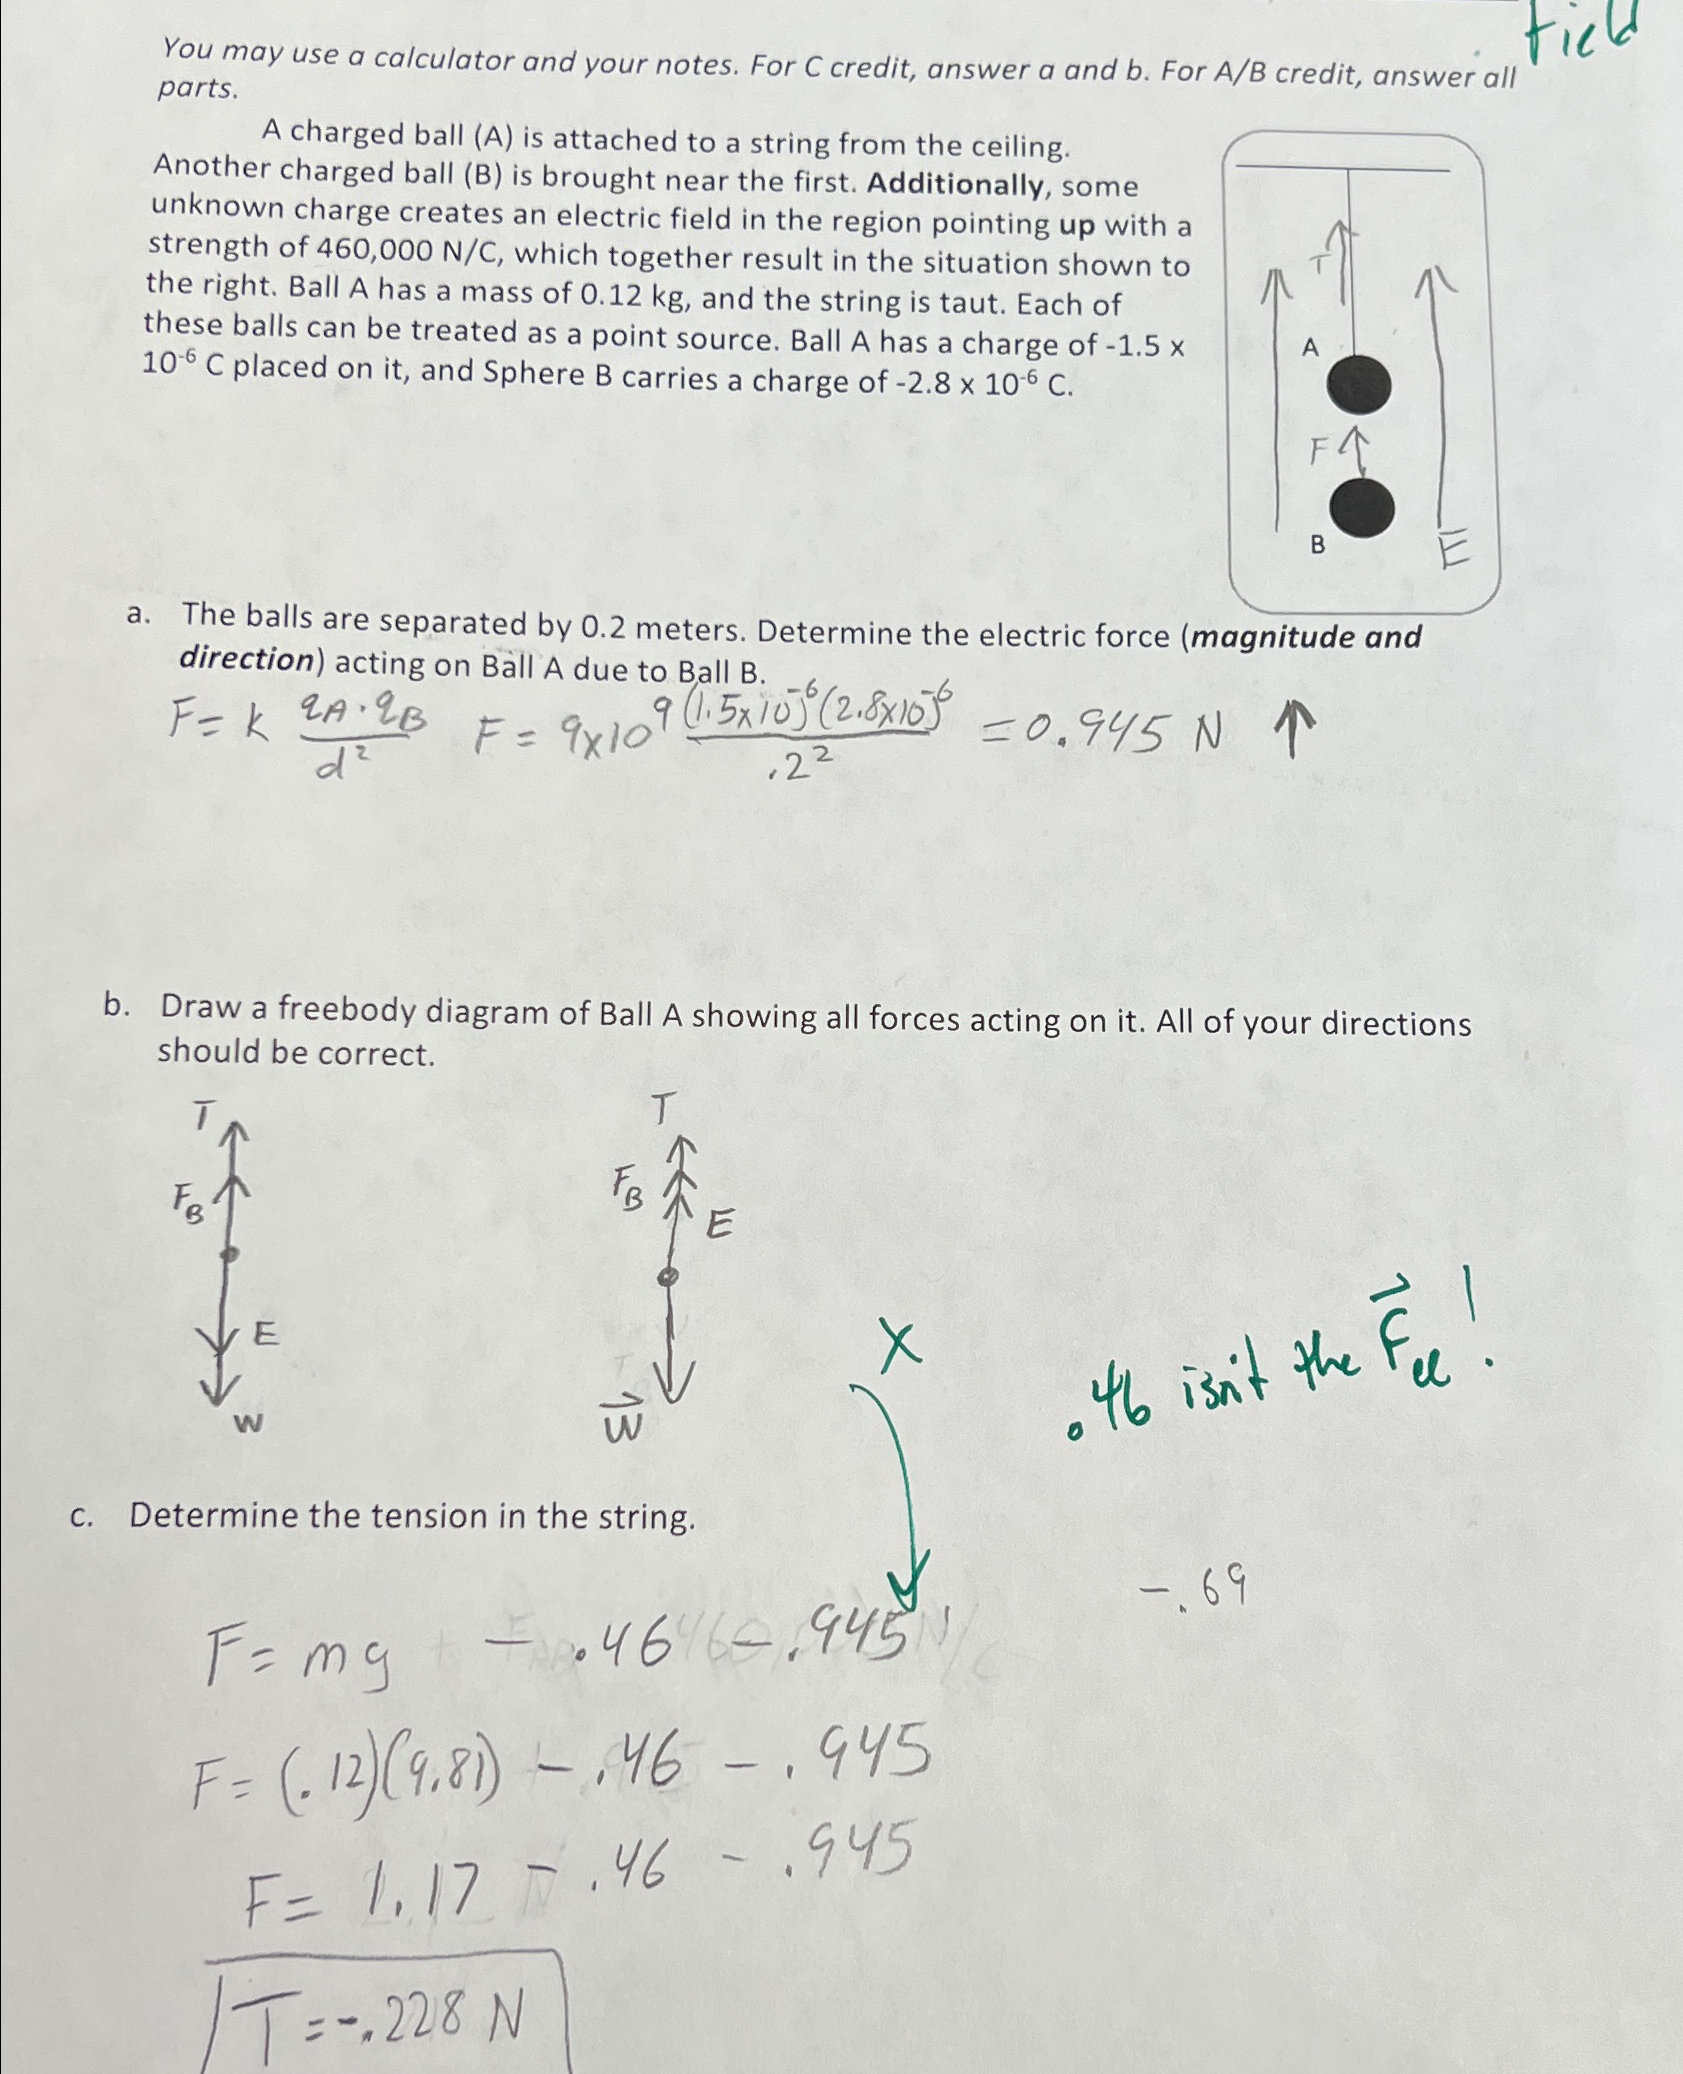 Field
You may use a calculator and your notes. For C credit, answer a and b. For A/B credit, answer all
parts.
A charged ball (A) is attached to a string from the ceiling.
Another charged ball (B) is brought near the first. Additionally, some
unknown charge creates an electric field in the region pointing up with a
strength of 460,000 N/C, which together result in the situation shown to
the right. Ball A has a mass of 0.12 kg, and the string is taut. Each of
these balls can be treated as a point source. Ball A has a charge of -1.5 x
10⁻⁶ C placed on it, and Sphere B carries a charge of -2.8 x 10⁻⁶ C.
T
A
F
B
E
a. The balls are separated by 0.2 meters. Determine the electric force (magnitude and
direction) acting on Ball A due to Ball B.
F = k qA · qB / d² F = 9x10⁹ (1.5x10)⁻⁶(2.8x10)⁻⁶ / .2² = 0.945 N ↑
b. Draw a freebody diagram of Ball A showing all forces acting on it. All of your directions
should be correct.
T
FB
E
W
T
FB
E
W
X
.46 isn't the Fel!
c. Determine the tension in the string.
-.69
F = mg - .46 - .945
F = (.12)(9.81) - .46 - .945
F = 1.17 - .46 - .945
T = -.228 N